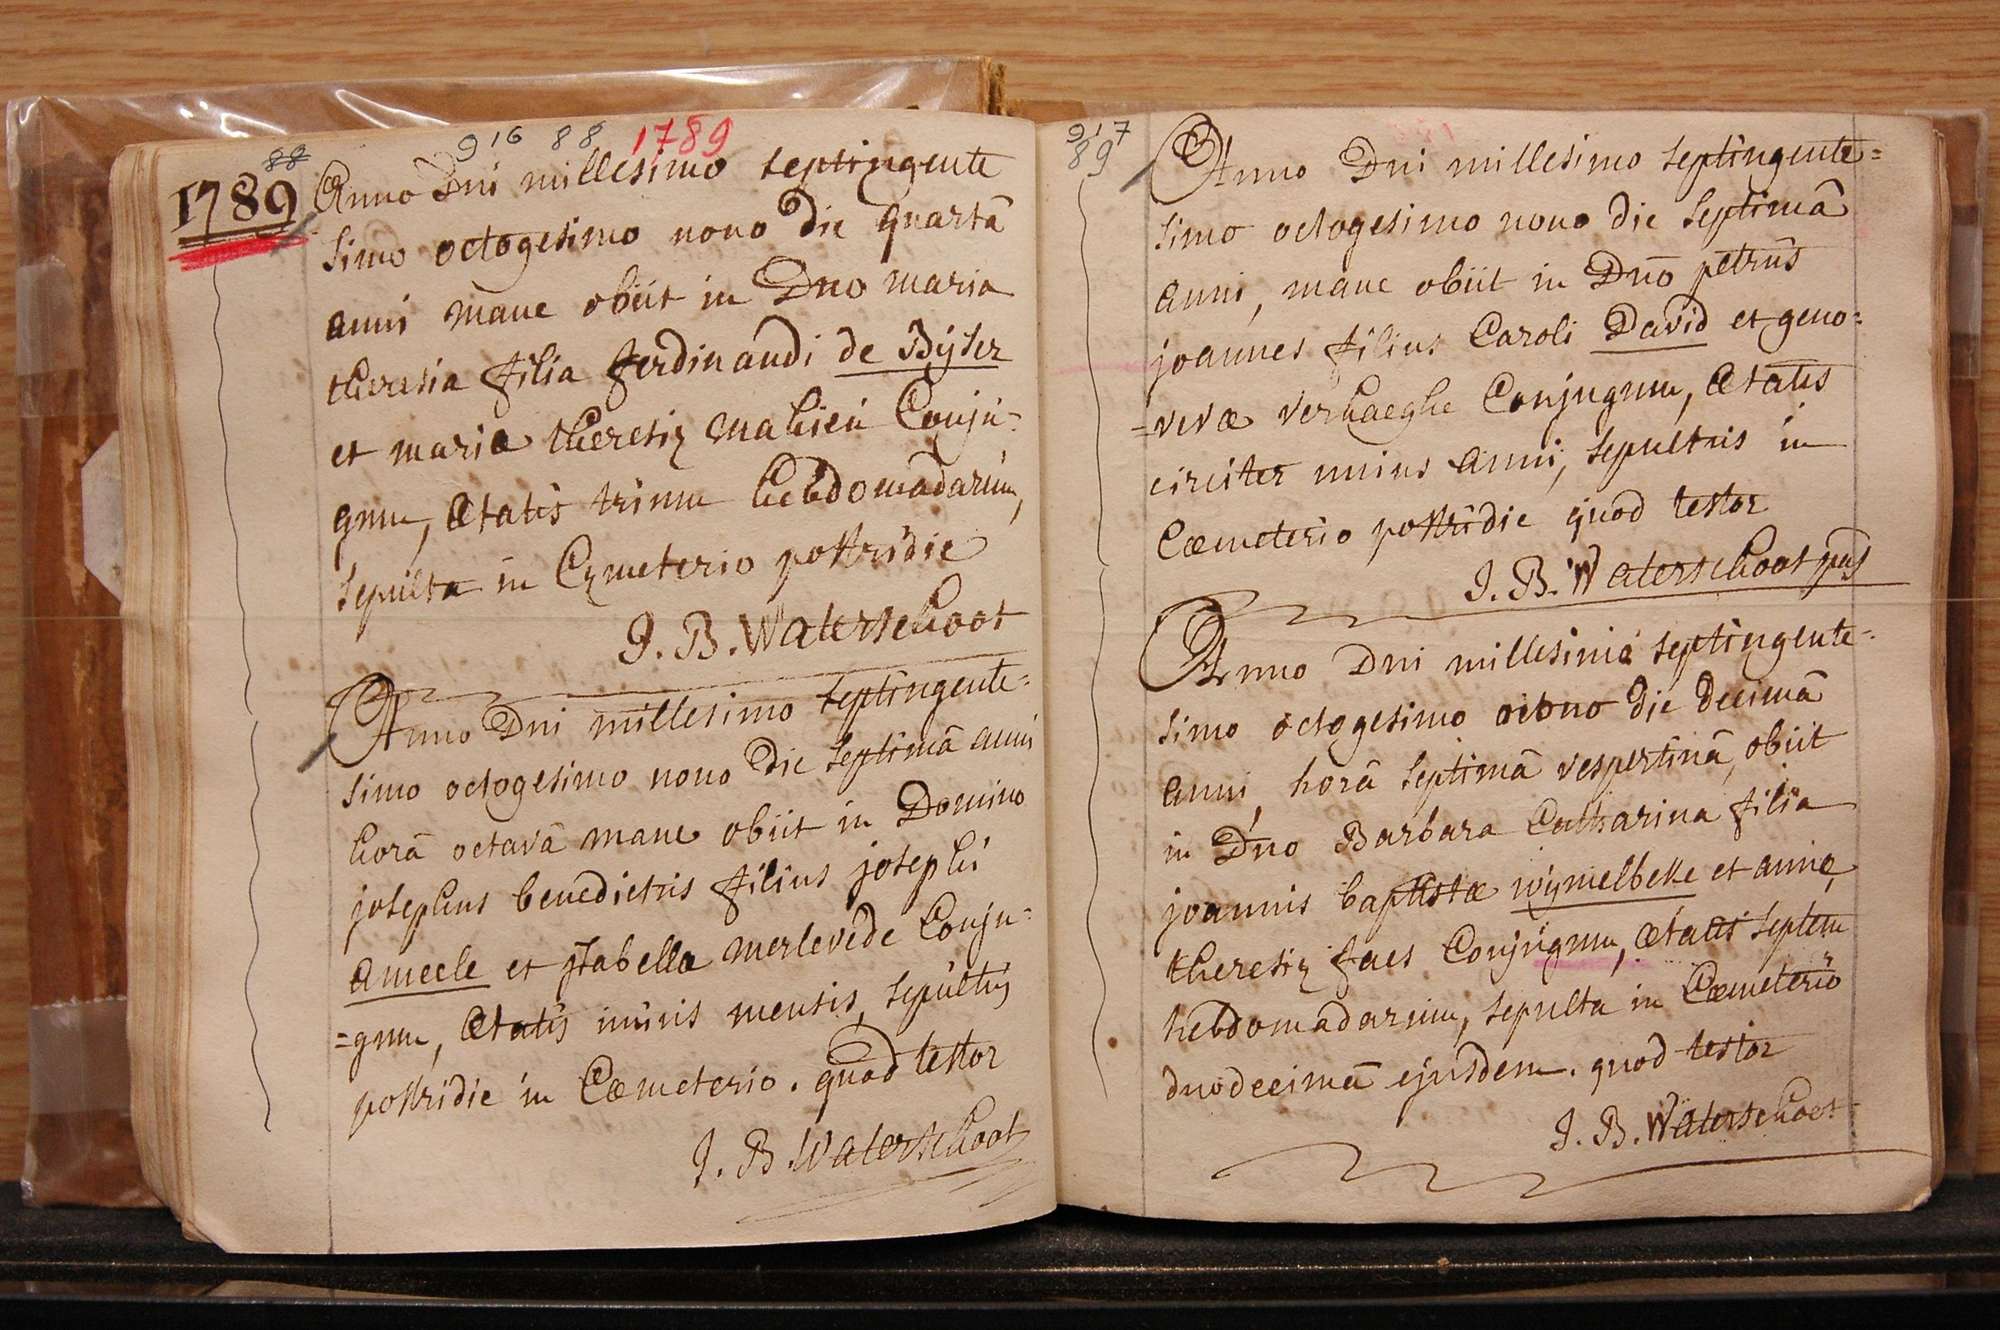 9 16 88 1789
88
1789
Anno Dni millesimo septingente
simo octogesimo nono die quartâ
anni mane obiit in Dno maria
theresia filia ferdinandi de Bÿser
et mariæ theresiæ mahieú Conju=
gum, Ætatis trium hebdomadarum,
sepulta in Cæmeterio postridie
J. B. Waterschoot
Anno Dni millesimo septingente=
simo octogesimo nono die septimâ anni
horâ octavâ mane obiit in Domino
josephus benedictus filius josephi
ameele et jsabella merlevede Conju=
=gum, Ætatis unius mensis, sepultus
postridie in Cæmeterio. quod testor
J. B. Waterschoot
917
89
Anno Dni millesimo septingente=
simo octogesimo nono die septimâ
anni, mane obiit in Dno petrus
joannes filius Caroli David et geno=
=vevæ verhaeghe Conjugum, Ætatis
circiter unius anni, sepultus in
Cæmeterio postridie quod testor
J. B. Waterschoot pas
Anno Dni millesimo septingente=
simo octogesimo nono die decimâ
anni, horâ septimâ vespertinâ, obiit
in Dno Barbara Catharina filia
joannis baptistæ wÿmelbeke et annæ
theresiæ faes Conjugum, ætatis septem
hebdomadarum, sepulta in Cæmeterio
duodecimâ ejusdem. quod testor
J. B. Waterschoot